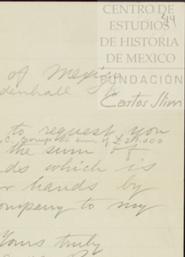 CENTRO DE
ESTUDIOS
DE HISTORIA
DE MEXICO
FUNDACIÓN
Carlos Slim
of Mexico
denhall
to request you
the sum of
ds which is
r hands by
ompany to my
Yours truly